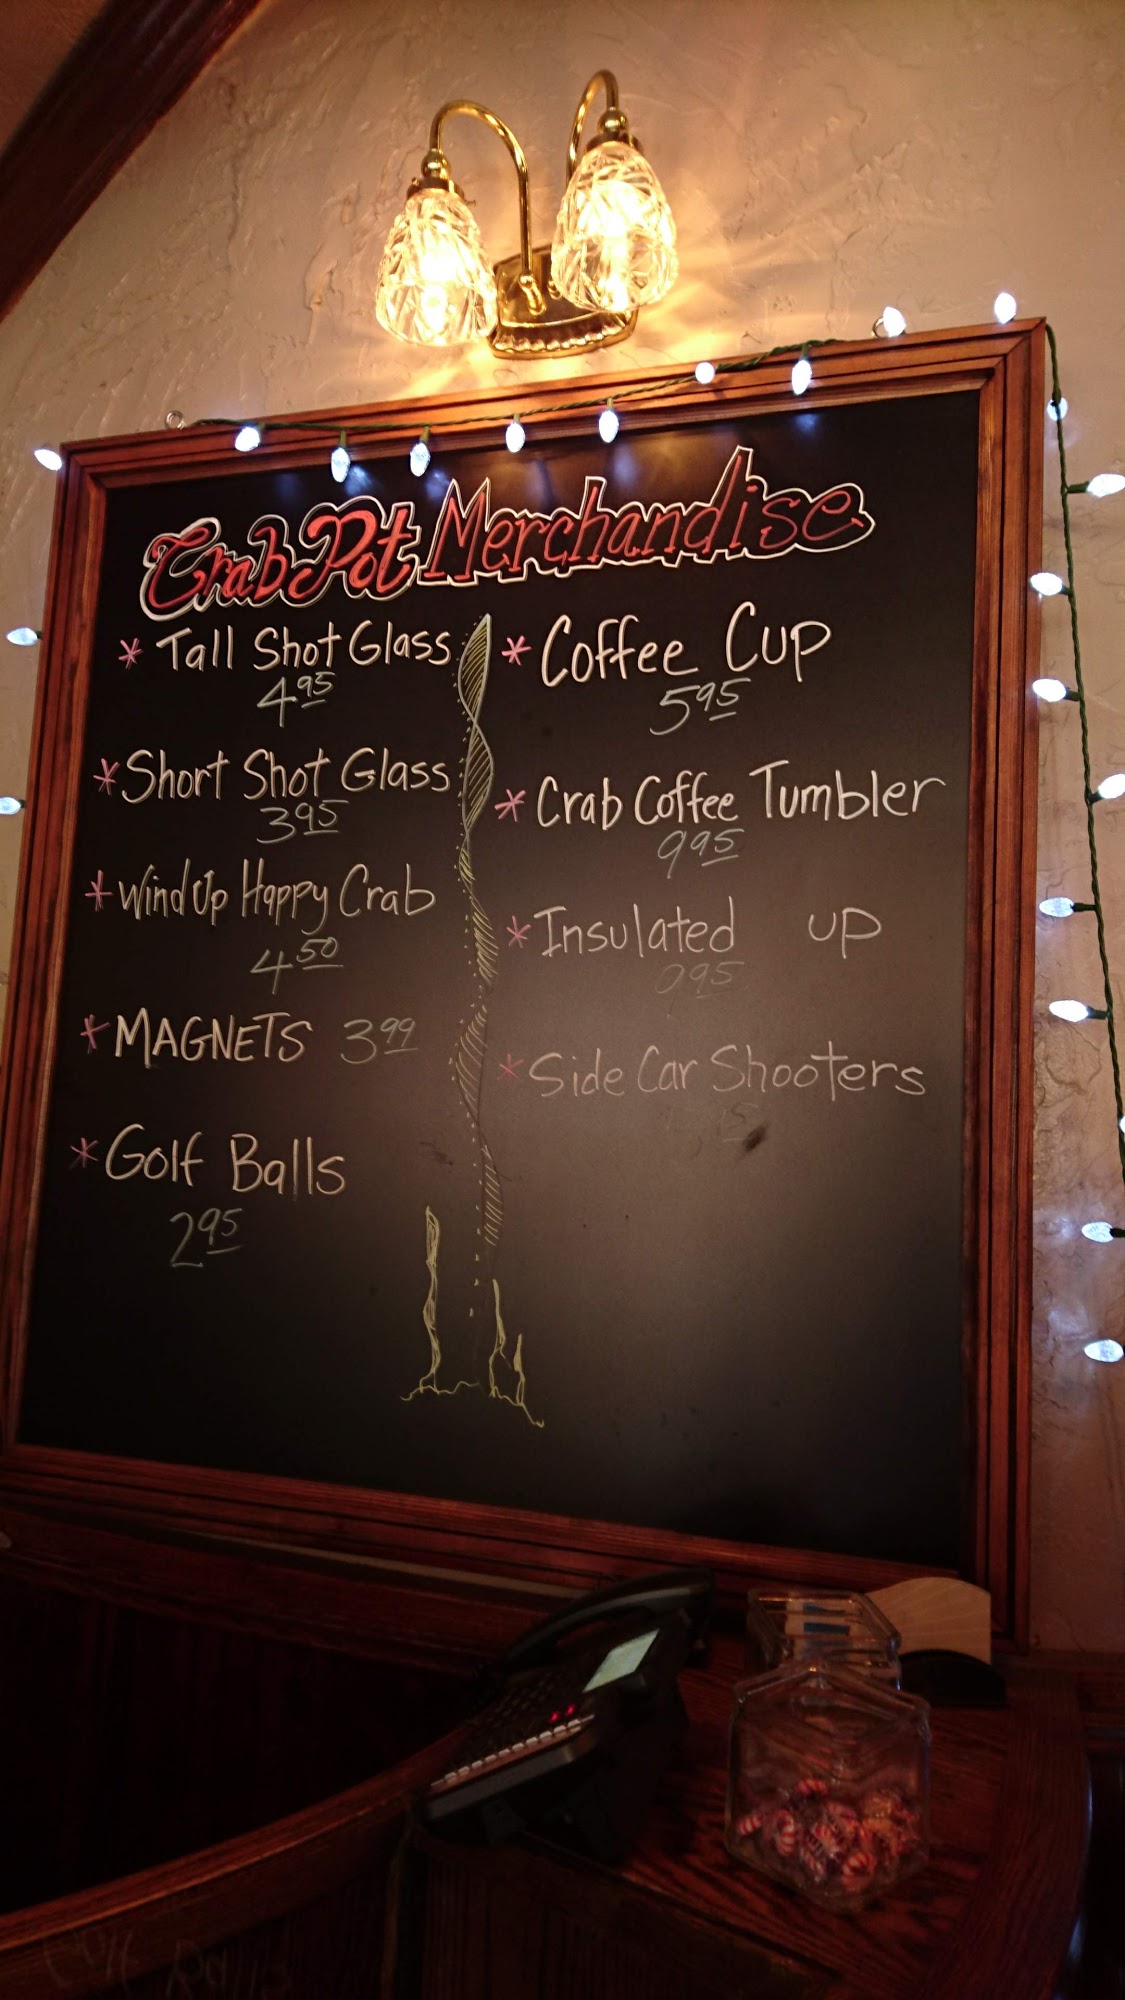 Crab Pot Merchandise
* Tall Shot Glass
4.95
* Short Shot Glass
3.95
* Wind Up Happy Crab
4.50
* MAGNETS 3.99
* Golf Balls
2.95
* Coffee Cup
5.95
* Crab Coffee Tumbler
9.95
* Insulated up
9.95
* Side Car Shooters